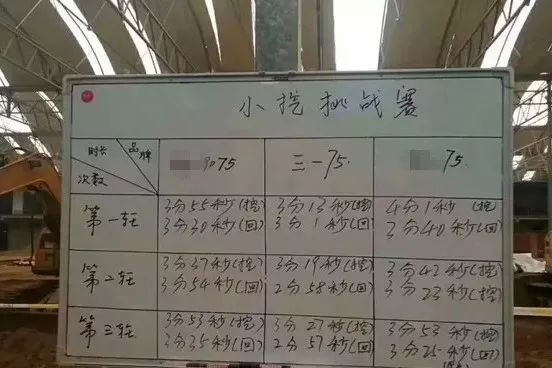 小挖挑战赛
时长 品牌
次数
9075 三一75 75
第一轮
3分55秒(挖) 3分13秒(挖) 4分1秒(挖)
3分30秒(回) 3分1秒(回) 3分40秒(回)
第2轮
3分37秒(挖) 3分19秒(挖) 3分42秒(挖)
3分54秒(回) 2分58秒(回) 3分23秒(回)
第三轮
3分53秒(挖) 3分27秒(挖) 3分53秒(挖)
3分35秒(回) 2分57秒(回) 3分25秒(回)